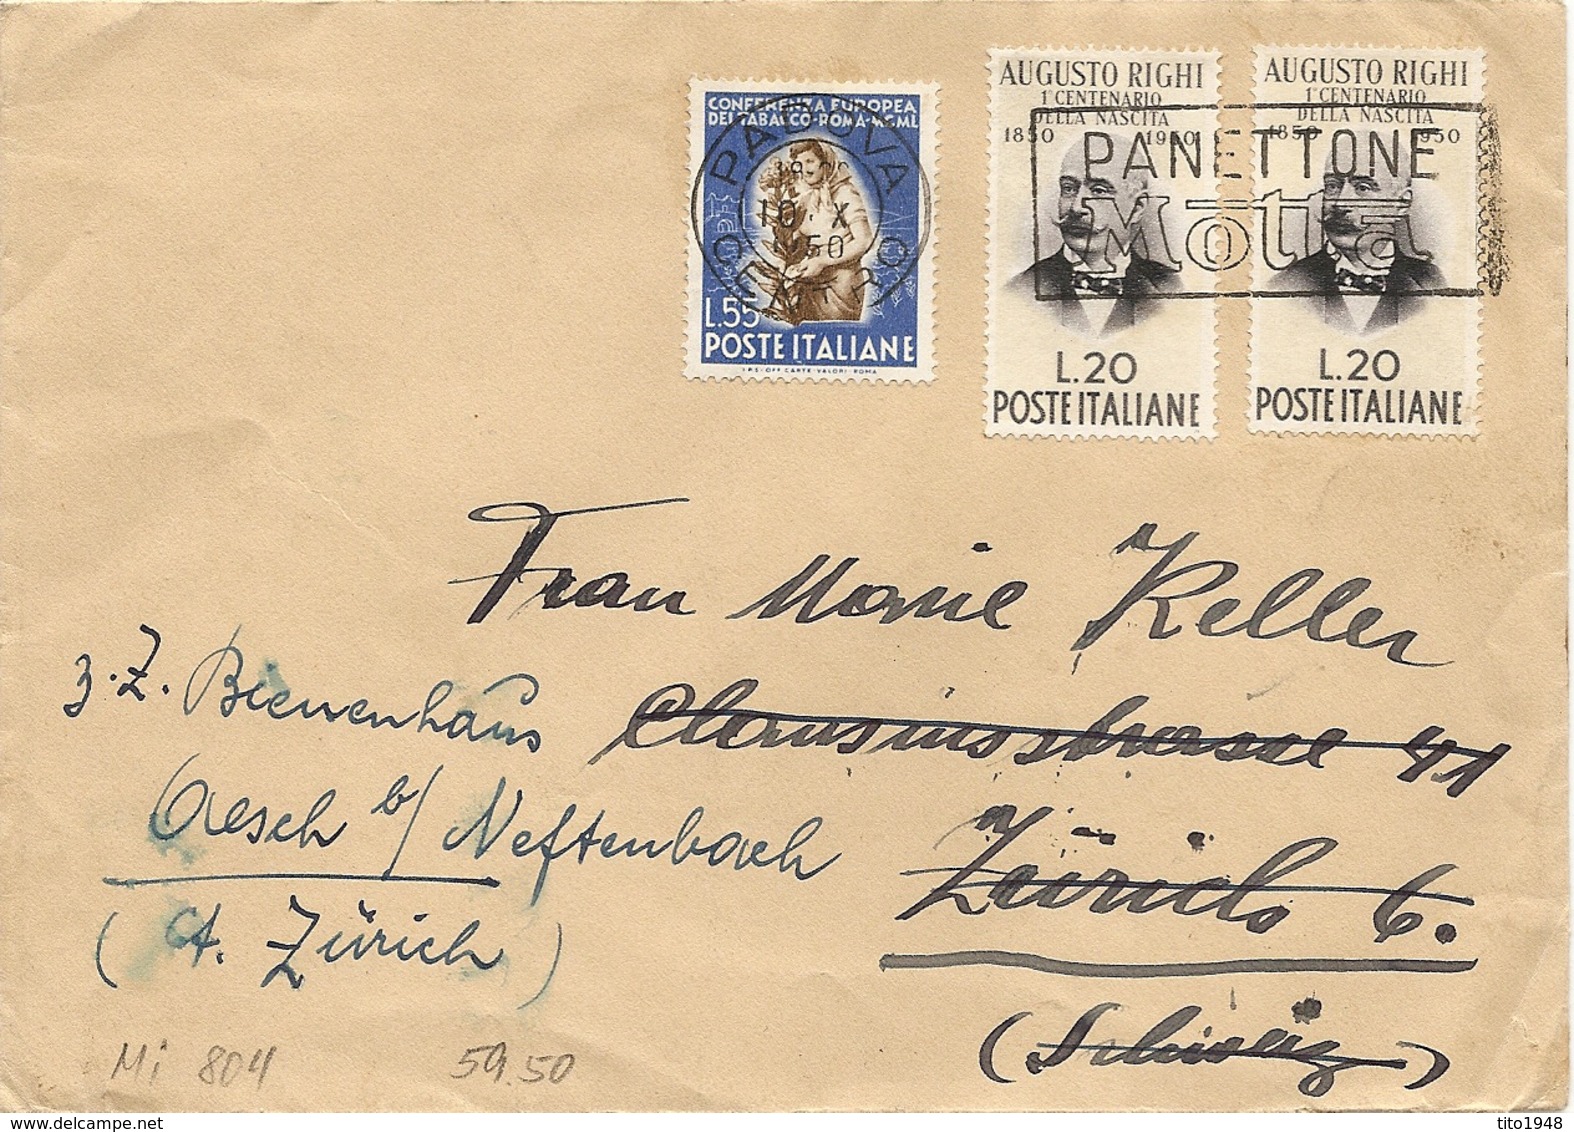 CONFERENZA EUROPEA
DEL TABACCO-ROMA-MCML
L.55
POSTE ITALIANE
I.P.S.-OFF. CARTE-VALORI-ROMA
PADOVA
10 X
50
CENTRO
AUGUSTO RIGHI
1° CENTENARIO
DELLA NASCITA
1850 1950
L.20
POSTE ITALIANE
AUGUSTO RIGHI
1° CENTENARIO
DELLA NASCITA
1850 1950
L.20
POSTE ITALIANE
PANETTONE
Motta
Frau Marie Keller
Clausiusstrasse 41
Zürich 6.
(Schweiz)
z. Z. Bienenhaus
Aesch b/ Neftenbach
(Kt. Zürich)
Mi 804 59.50
tito1948